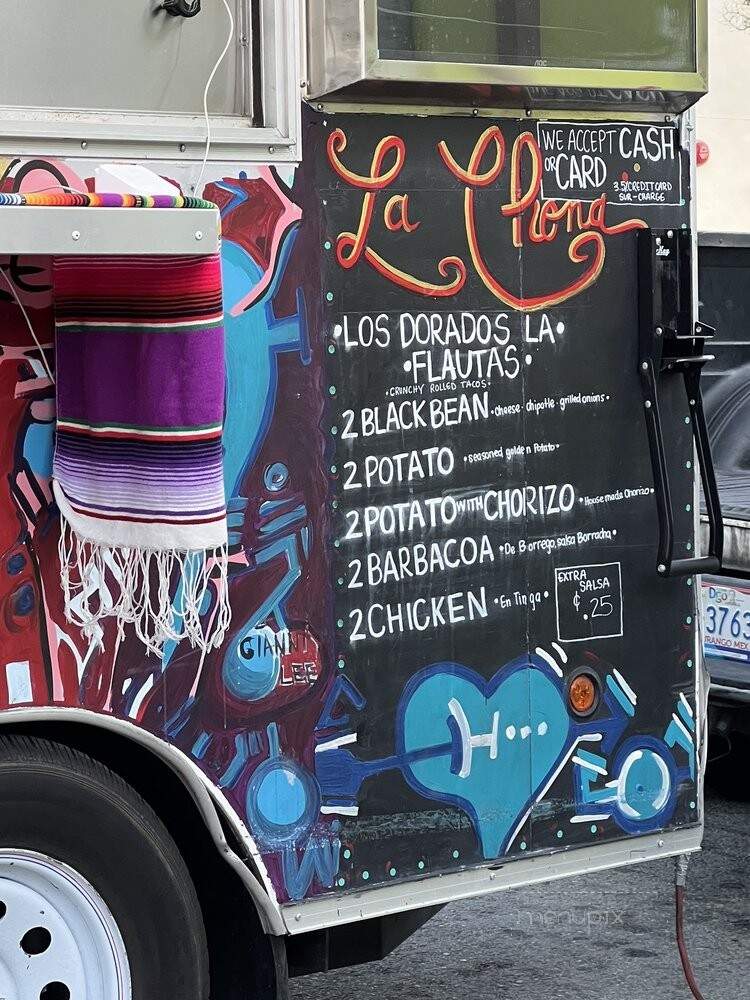 WE ACCEPT CASH
OR CARD
3.5% CREDIT CARD
SUR-CHARGE
La Chona
•LOS DORADOS LA•
•FLAUTAS•
•CRUNCHY ROLLED TACOS•
2 BLACK BEAN •cheese•chipotle•grilled onions•
2 POTATO •seasoned golden Potato•
2 POTATO WITH CHORIZO •House made Chorizo•
2 BARBACOA •De Borrego, salsa Borracha•
2 CHICKEN •En Tinga•
EXTRA
SALSA
¢.25
GIANNI
LEE
H...
W
3763
menupix